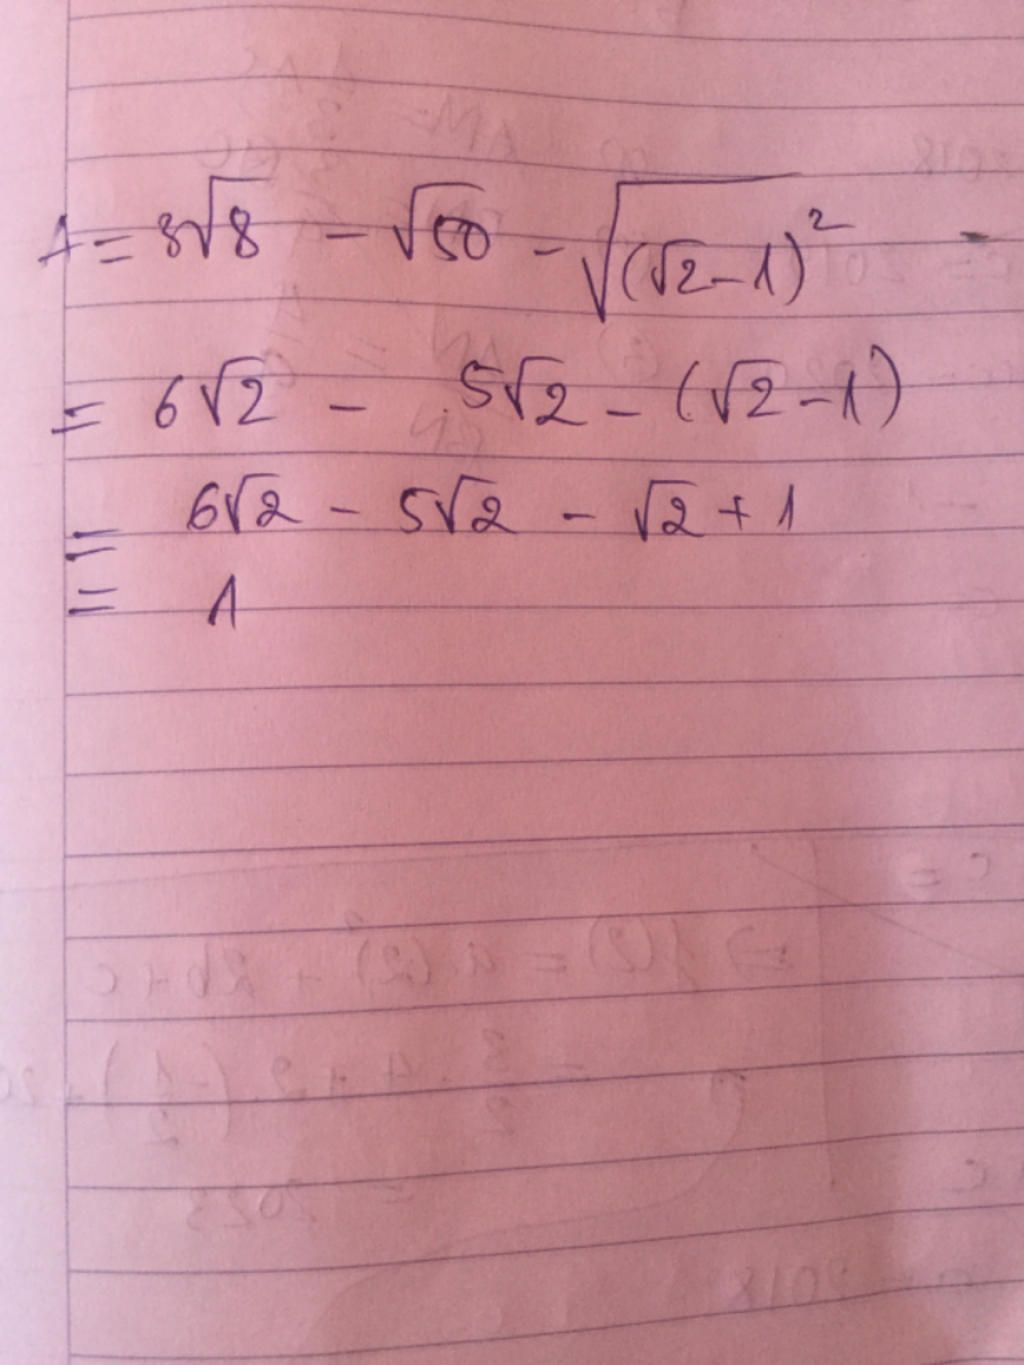 A = 3√8 - √50 - √(√2-1)²
= 6√2 - 5√2 - (√2-1)
= 6√2 - 5√2 - √2 + 1
= 1